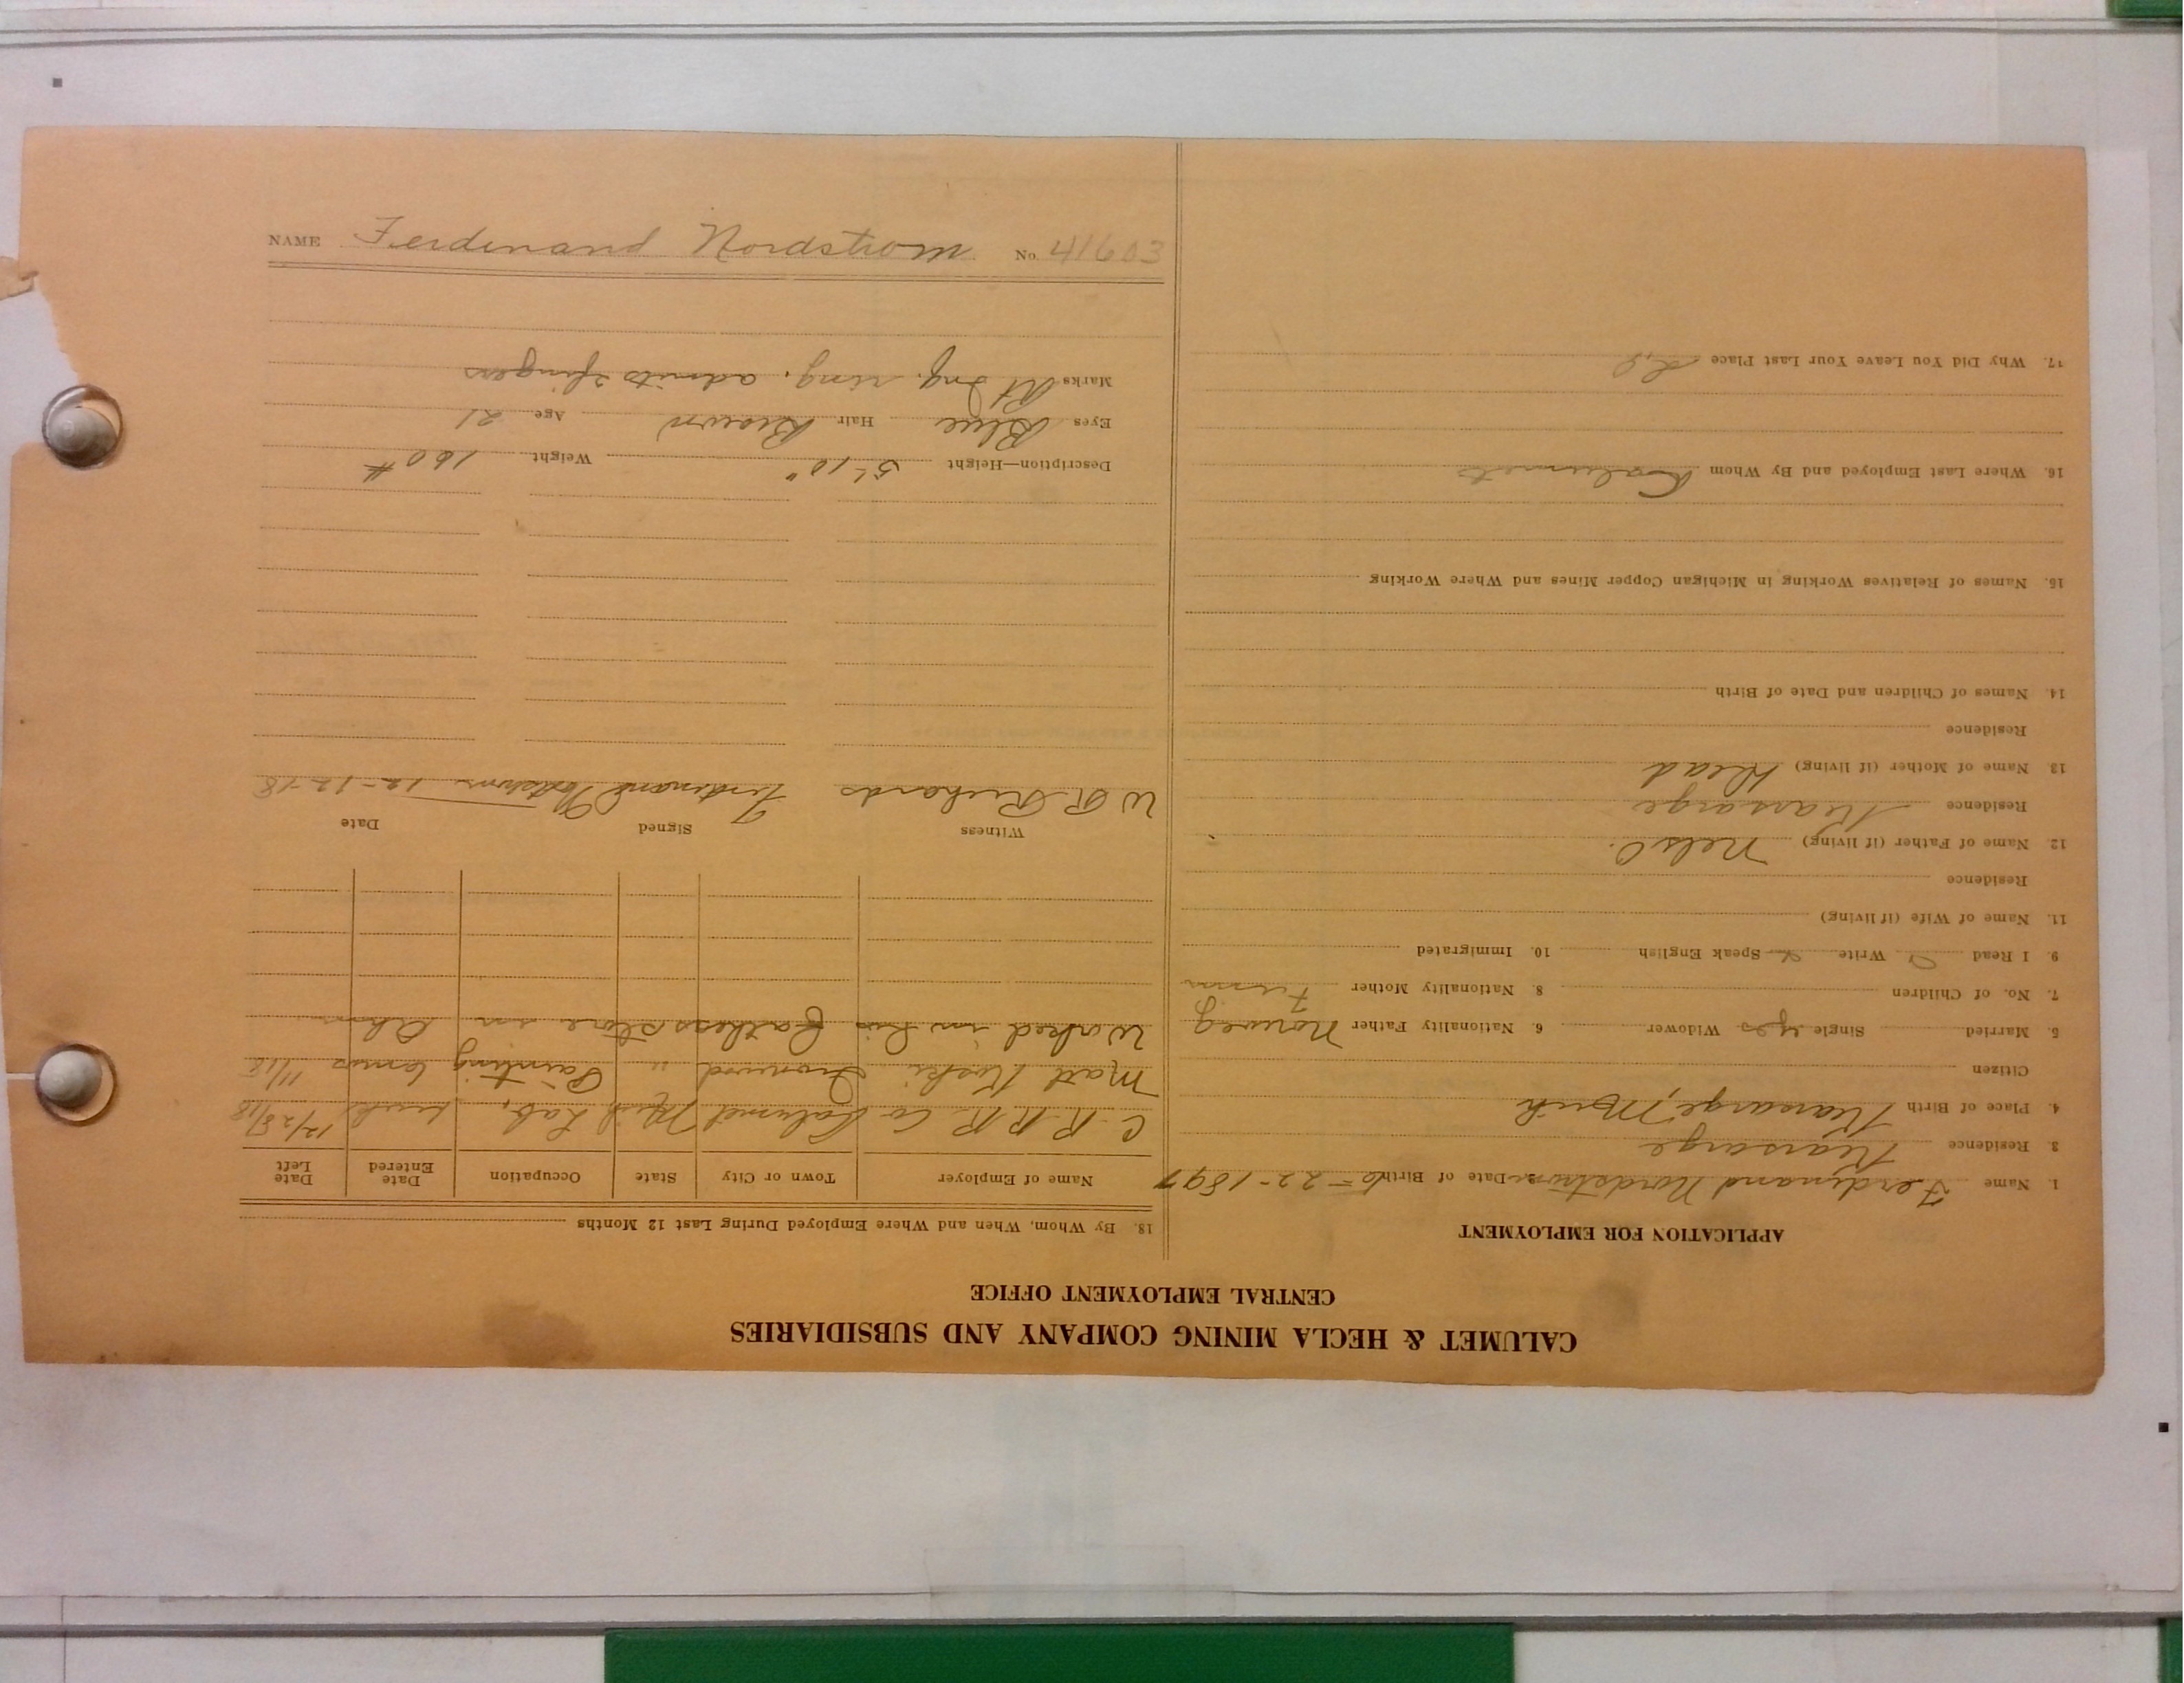 CALUMET & HECLA MINING COMPANY AND SUBSIDIARIES
CENTRAL EMPLOYMENT OFFICE
APPLICATION FOR EMPLOYMENT
1. Name Ferdinand Nordstrom 2. Date of Birth 6-22-1897
3. Residence Kearsarge
4. Place of Birth Kearsarge, Mich
Citizen
5. Married Single yes Widower 6. Nationality Father Norweg
7. No. of Children 8. Nationality Mother Finn
9. I Read Write Speak English 10. Immigrated
11. Name of Wife (if living)
Residence
12. Name of Father (if living) Nels O.
Residence Kearsarge
13. Name of Mother (if living) Dead
Residence
14. Names of Children and Date of Birth
15. Names of Relatives Working in Michigan Copper Mines and Where Working
16. Where Last Employed and By Whom Calumet
17. Why Did You Leave Your Last Place
18. By Whom, When and Where Employed During Last 12 Months
Name of Employer Town or City State Occupation Date Entered Date Left
C. R. R. R. Co Calumet Mich, Lab,
Matt Koski Ironwood " Painting 6 mos 11/18
Worked in his fathers store in
Witness Signed Date
W R Richards Ferdinand Nordstrom 12-12-18
Description—Height 5' 10" Weight 160 #
Eyes Blue Hair Brown Age 21
Marks Rt Ing. ring. admits 2 fingers
NAME Ferdinand Nordstrom No. 41603